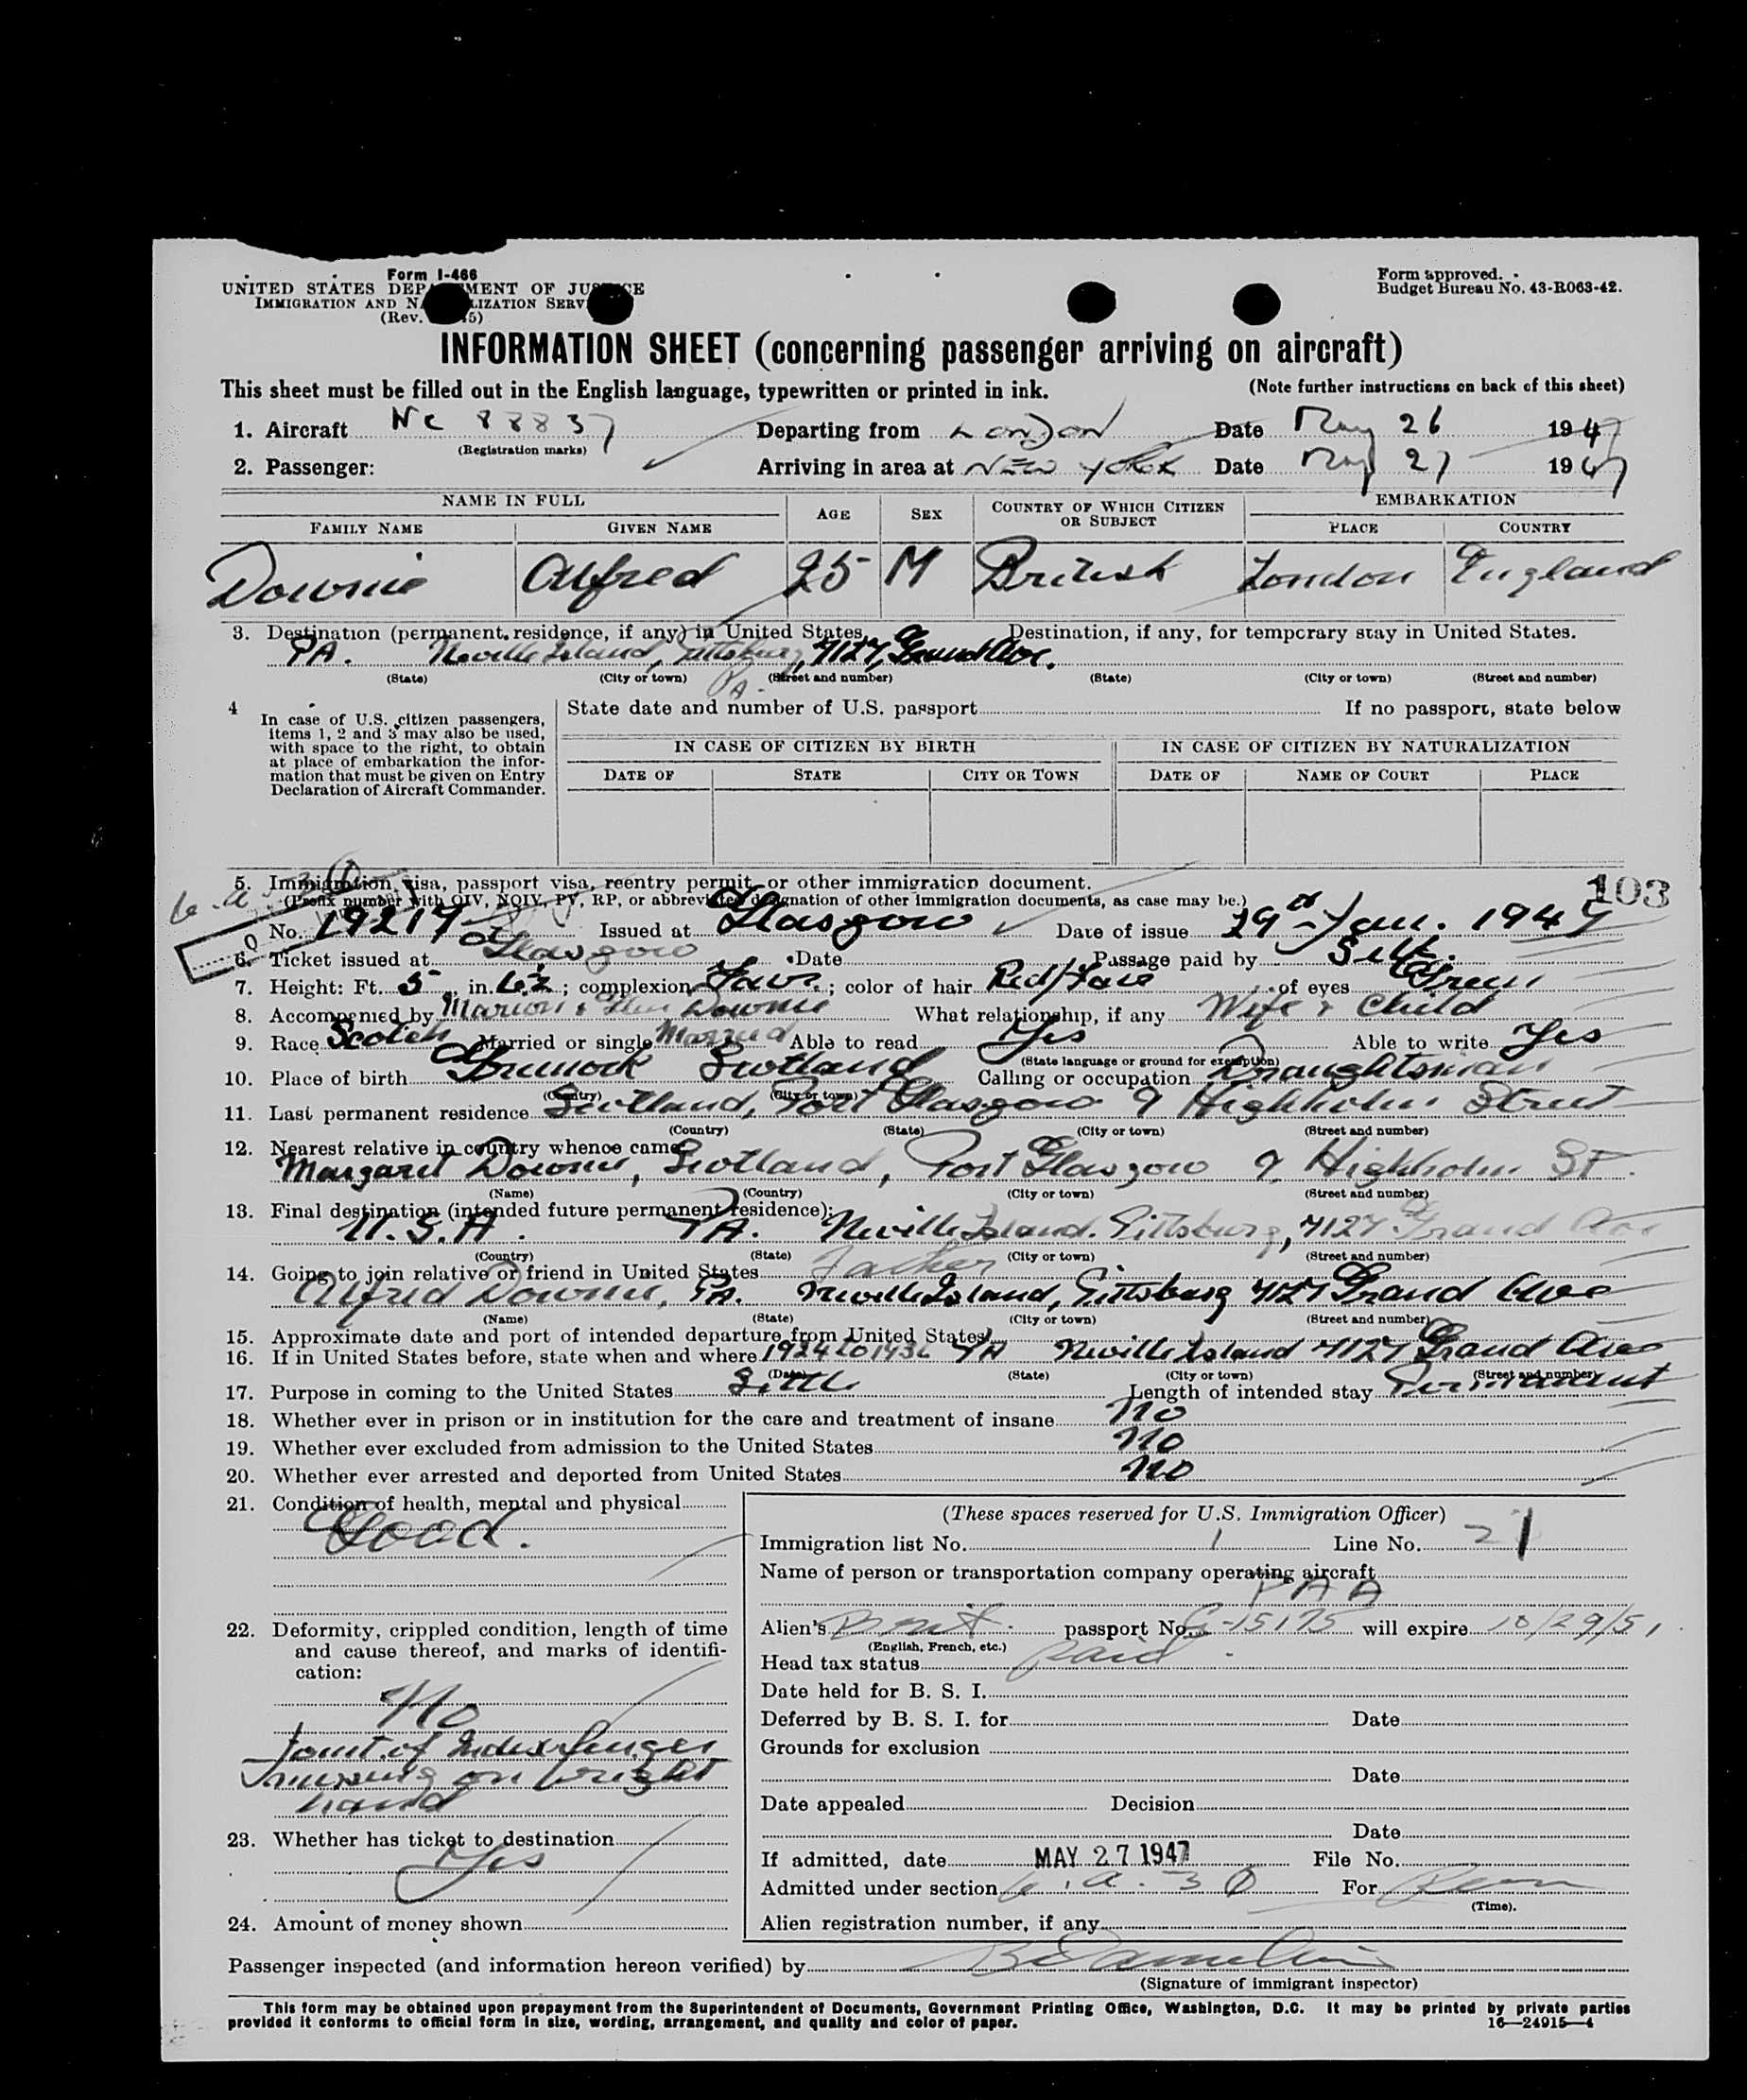 Form I-466
UNITED STATES DEP MENT OF JU CE
IMMIGRATION AND N LIZATION SERV
(Rev. 5)
Form approved.
Budget Bureau No. 43-R063-42.
INFORMATION SHEET (concerning passenger arriving on aircraft)
This sheet must be filled out in the English language, typewritten or printed in ink. (Note further instructions on back of this sheet)
1. Aircraft NC 88837 Departing from LONDON Date May 26 1947
(Registration marks)
2. Passenger: Arriving in area at NEW YORK Date May 27 1947
NAME IN FULL AGE SEX COUNTRY OF WHICH CITIZEN OR SUBJECT EMBARKATION
FAMILY NAME GIVEN NAME PLACE COUNTRY
Downie Alfred 25 M British London England
3. Destination (permanent residence, if any) in United States. Destination, if any, for temporary stay in United States.
PA. Neville Island, Pittsburg, 7127, Grand Ave.
(State) (City or town) (Street and number) (State) (City or town) (Street and number)
PA.
4 In case of U.S. citizen passengers, items 1, 2 and 3 may also be used, with space to the right, to obtain at place of embarkation the information that must be given on Entry Declaration of Aircraft Commander.
State date and number of U.S. passport If no passport, state below
IN CASE OF CITIZEN BY BIRTH IN CASE OF CITIZEN BY NATURALIZATION
DATE OF STATE CITY OR TOWN DATE OF NAME OF COURT PLACE
5. Immigration visa, passport visa, reentry permit, or other immigration document.
(Prefix number with QIV, NQIV, PV, RP, or abbreviated designation of other immigration documents, as case may be.)
103
No. 19219 Issued at Glasgow Date of issue 29th Jan. 1947
6. Ticket issued at Glasgow Date Passage paid by Self.
7. Height: Ft. 5 in. 6½; complexion Fair; color of hair Red/Fair of eyes Green
8. Accompanied by Marion & Downie What relationship, if any Wife & Child
9. Race Scotch Married or single Married Able to read Yes Able to write Yes
(State language or ground for exemption)
10. Place of birth Greenock Scotland Calling or occupation Draughtsman
(Country) (City or town)
11. Last permanent residence Scotland, Port Glasgow 9 Highholm Street
(Country) (State) (City or town) (Street and number)
12. Nearest relative in country whence came
Margaret Downie, Scotland, Port Glasgow 9 Highholm ST.
(Name) (Country) (City or town) (Street and number)
13. Final destination (intended future permanent residence):
U.S.A. PA. Neville Island. Pittsburg, 7127 Grand Ave
(Country) (State) (City or town) (Street and number)
14. Going to join relative or friend in United States Father
Alfred Downie, PA. Neville Island, Pittsburg 7127 Grand Ave
(Name) (State) (City or town) (Street and number)
15. Approximate date and port of intended departure from United States
16. If in United States before, state when and where 1924 to 1932 PA Neville Island 7127 Grand Ave
(Date) (State) (City or town) (Street and number)
17. Purpose in coming to the United States Settle Length of intended stay Permanant
18. Whether ever in prison or in institution for the care and treatment of insane No
19. Whether ever excluded from admission to the United States No
20. Whether ever arrested and deported from United States No
21. Condition of health, mental and physical
Good.
22. Deformity, crippled condition, length of time and cause thereof, and marks of identification:
No
Joint of Index finger
missing on right
hand
23. Whether has ticket to destination
Yes
24. Amount of money shown
(These spaces reserved for U.S. Immigration Officer)
Immigration list No. 1 Line No. 21
Name of person or transportation company operating aircraft
PAA
Alien's Brit. passport No. C-15175 will expire 10/29/51
(English, French, etc.)
Head tax status paid
Date held for B. S. I.
Deferred by B. S. I. for Date
Grounds for exclusion
Date
Date appealed Decision
Date
If admitted, date MAY 27 1947 File No.
Admitted under section 6.a.3 For Perm
(Time).
Alien registration number, if any
Passenger inspected (and information hereon verified) by
(Signature of immigrant inspector)
This form may be obtained upon prepayment from the Superintendent of Documents, Government Printing Office, Washington, D.C. It may be printed by private parties
provided it conforms to official form in size, wording, arrangement, and quality and color of paper. 16—24915—4